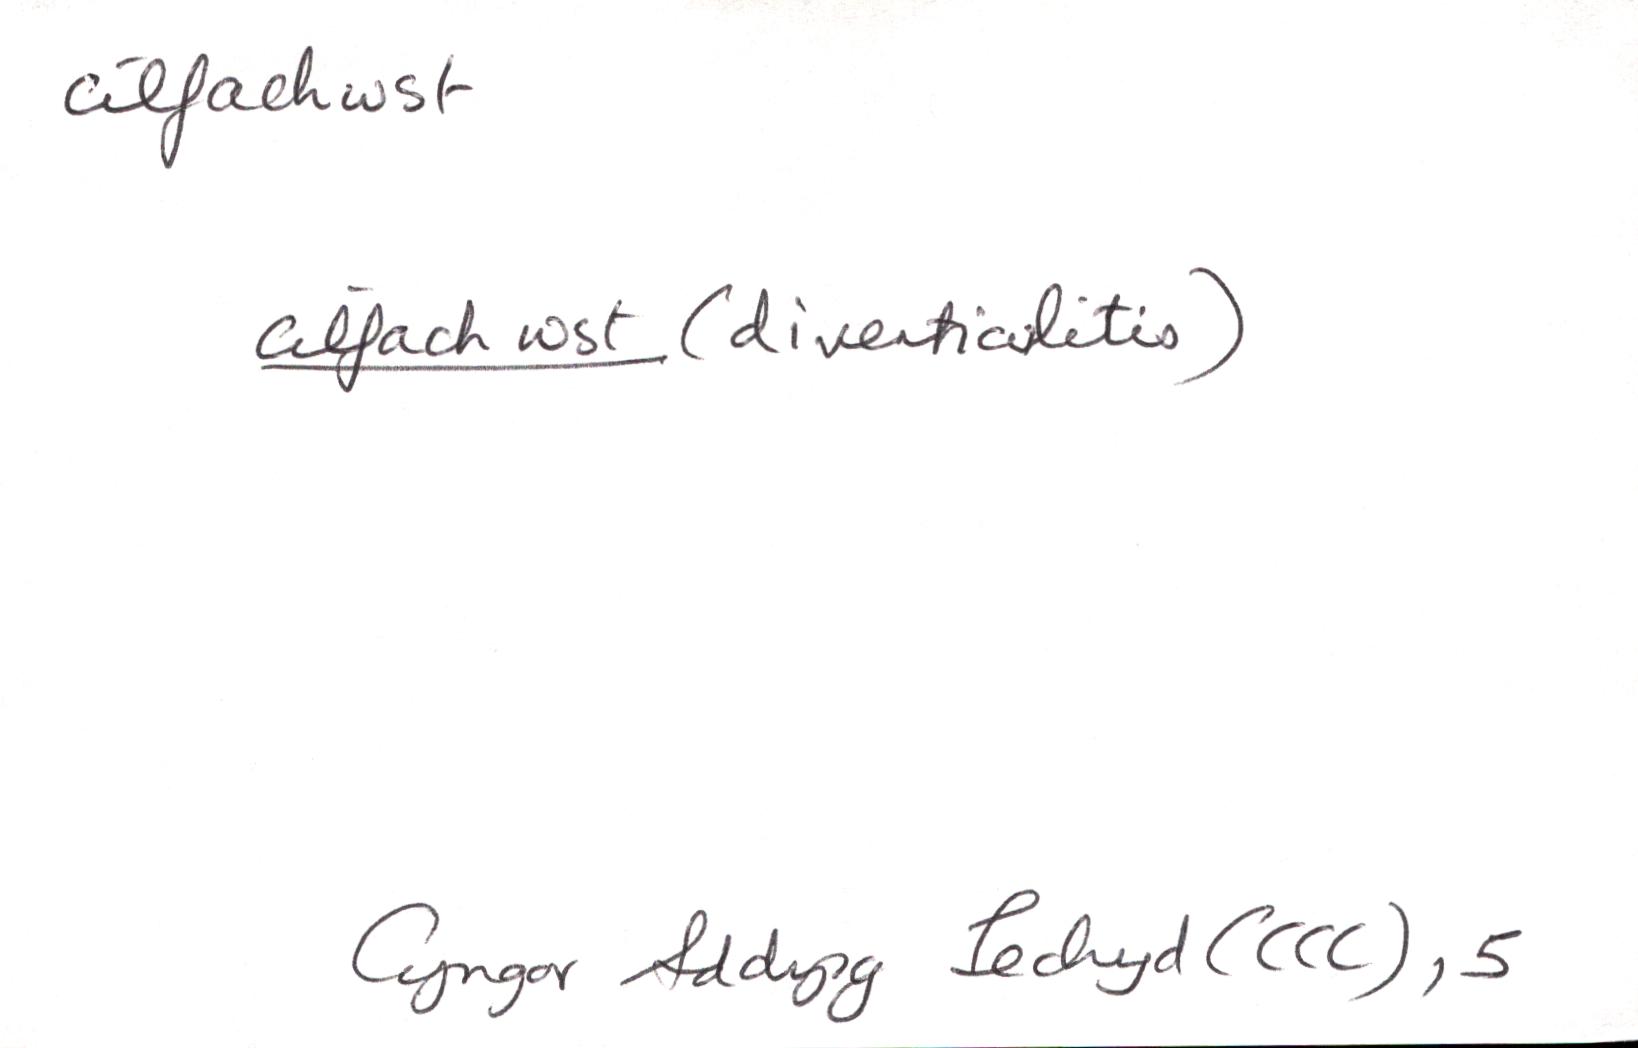 cilfachwst
cilfach wst (diverticulitis)
Cyngor Addysg Iechyd (CCC), 5